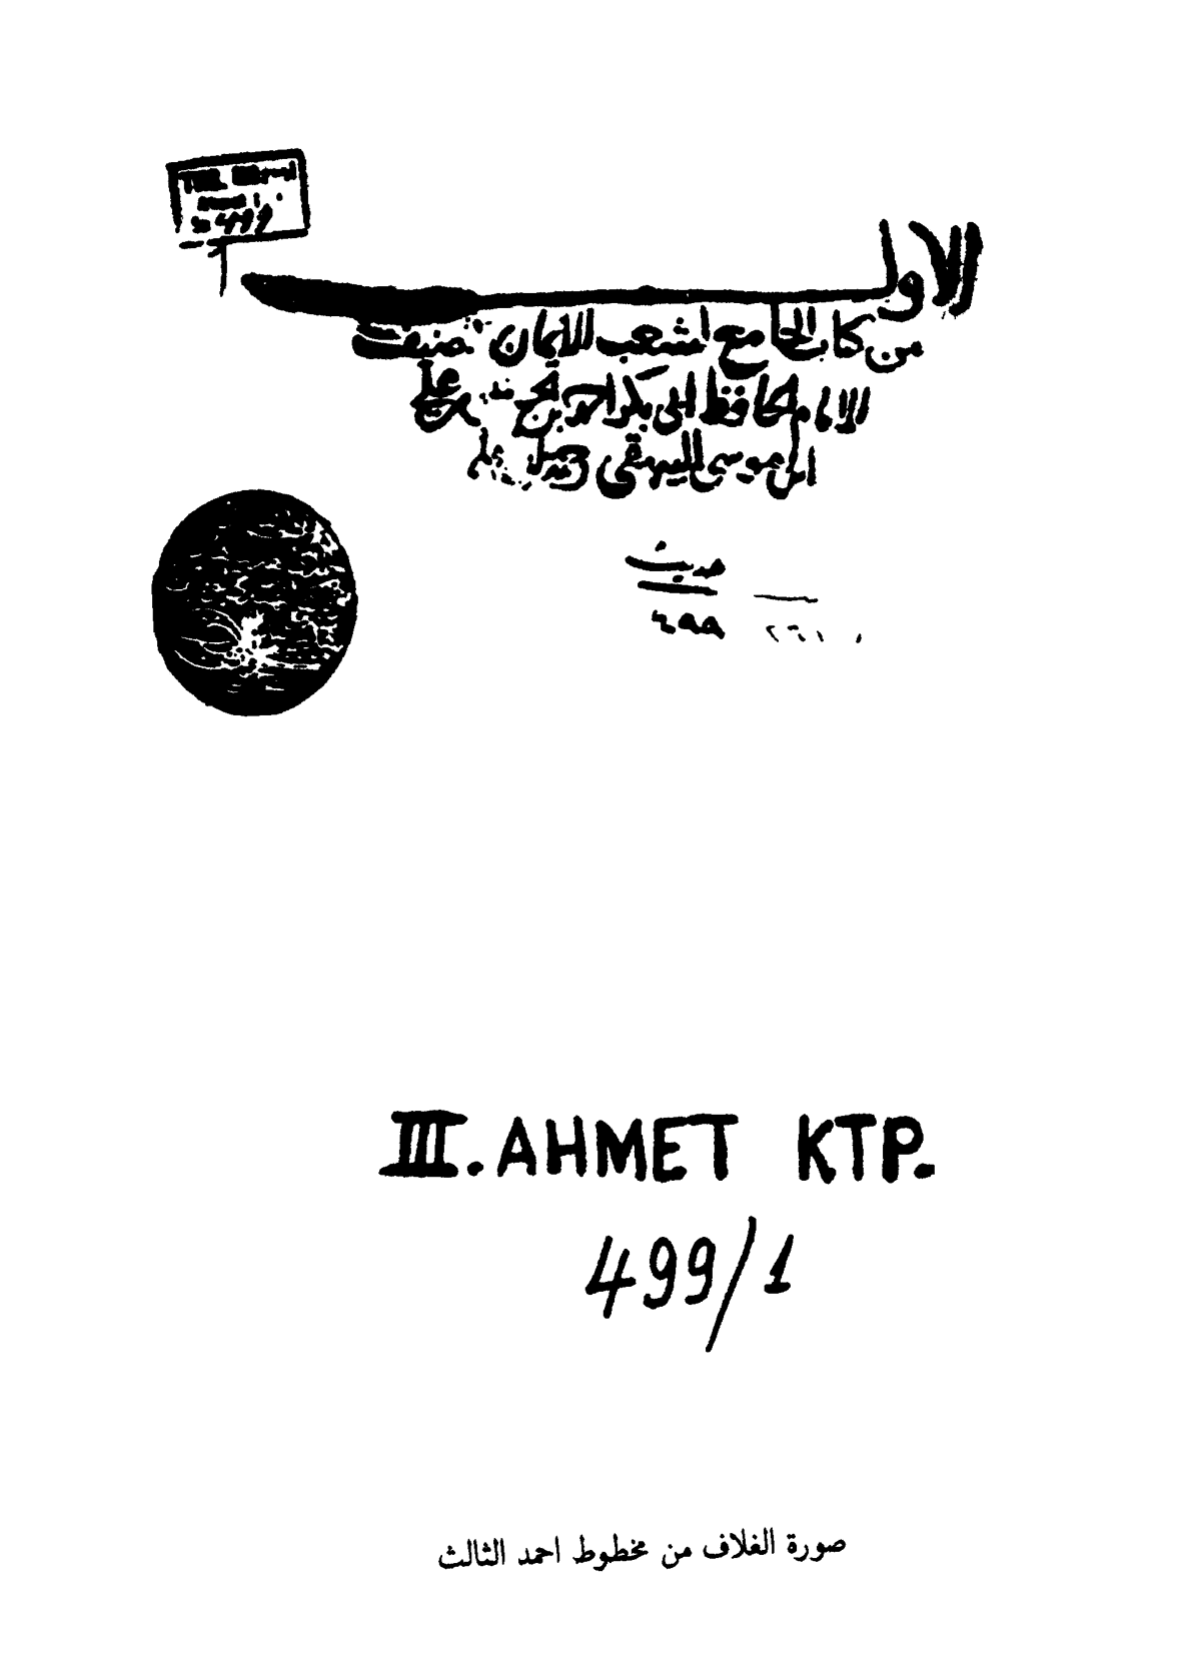 499
الاول
من كتاب الجامع لشعب الايمان تصنيف
الامام الحافظ ابى بكر احمد بن الحسين بن على
ابن موسى البيهقى
حديث
٤٩٩
III. AHMET KTP.
499/1
صورة الغلاف من مخطوط احمد الثالث